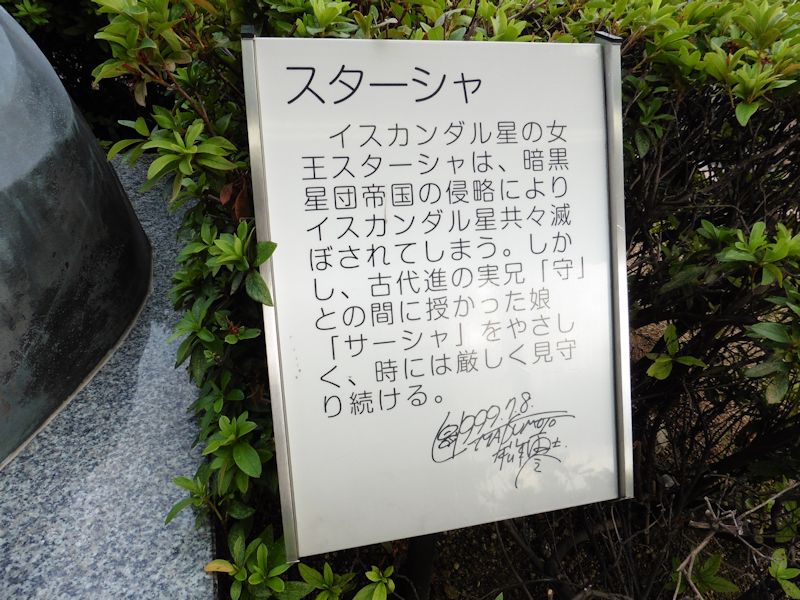 スターシャ
イスカンダル星の女
王スターシャは、暗黒
星団帝国の侵略により
イスカンダル星共々滅
ぼされてしまう。しか
し、古代進の実兄「守」
との間に授かった娘
「サーシャ」をやさし
く、時には厳しく見守
り続ける。
1999.7.8.